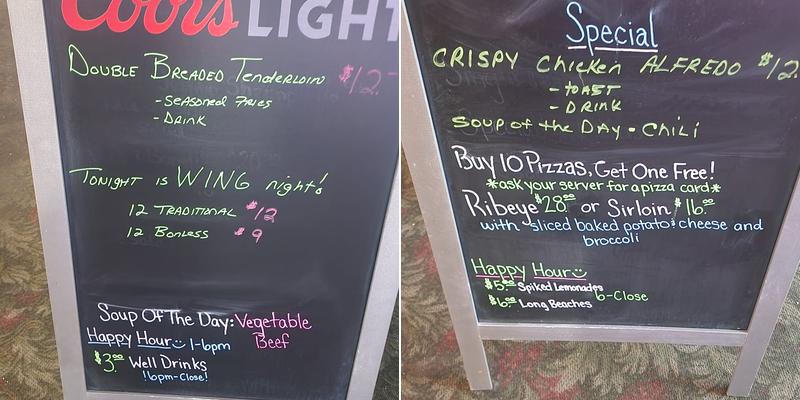 Coors LIGHT
DOUBLE BREADED TENDERLOIN $12.
- SEASONED FRIES
- DRINK
TONIGHT IS WING night!
12 TRADITIONAL $12
12 BONLESS $9
Soup Of The Day: Vegetable
Beef
Happy Hour 1-6pm
$3.00 Well Drinks
!6pm-Close!
Special
CRISPY Chicken ALFREDO $12.
- tOAST
- DRINK
SOUP of the DAY - CHiLi
Buy 10 Pizzas, Get One Free!
*ask your server for a pizza card*
Ribeye $28.00 or Sirloin $16.00
with sliced baked potato & cheese and
broccoli
Happy Hour
$5.00 Spiked Lemonades
$6.00 Long Beaches 6-Close